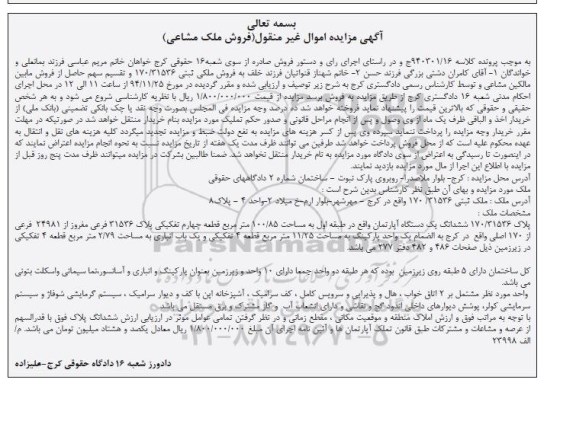 بسمه تعالی
آگهی مزایده اموال غیر منقول(فروش ملک مشاعی)
به موجب پرونده کلاسه ۹۴۰۳۰۱/۱۶ج و در راستای اجرای رای و دستور فروش صادره از سوی شعبه۱۶ حقوقی کرج خواهان خانم مریم عباسی فرزند بمانعلی و
خواندگان ۱- آقای کامران دشتی بزرگی فرزند حسن ۲- خانم شهناز قنواتیان فرزند خلف به فروش ملکی ثبتی ۱۷۰/۳۱۵۳۶ و تقسیم سهم حاصل از فروش مابین
مالکین مشاعی و توسط کارشناس رسمی دادگستری کرج به شرح زیر توصیف و ارزیابی شده و مقرر گردیده در مورخ ۹۴/۱۱/۲۵ از ساعت ۱۱ الی ۱۲ در محل اجرای
احکام مدنی شعبه ۱۶ دادگستری کرج از طریق مزایده به فروش برسد مزایده از قیمت ۱/۸۰۰/۰۰۰/۰۰۰ ریال با نظریه کارشناسی شروع می شود و به هر شخص
حقیقی و حقوقی که بالاترین قیمت را پیشنهاد نماید فروخته خواهد شد ده درصد وجه مزایده فی المجلس بصورت وجه نقد یا چک بانکی تضمینی (بانک ملی) از
خریدار اخذ و الباقی ظرف یک ماه از وی وصول و پس از انجام مراحل قانونی و صدور حکم تملیک مورد مزایده بنام خریدار منتقل خواهد شد در صورتیکه در مهلت
مقرر خریدار وجه مزایده را پرداخت ننماید سپرده وی پس از کسر هزینه های مزایده به نفع دولت ضبط و مزایده تجدید میگردد کلیه هزینه های نقل و انتقال به
عهده محکوم علیه است که از محل فروش پرداخت خواهد شد طرفین می توانند ظرف مدت یک هفته از تاریخ مزایده نسبت به نحوه انجام مزایده اعتراض نمایند که
در اینصورت تا رسیدگی به اعتراض از سوی دادگاه مورد مزایده به نام خریدار منتقل نخواهد شد. ضمنا طالبین بشرکت در مزایده میتوانند ظرف مدت پنج روز قبل از
مزایده با اطلاع این اجرا از مال مورد مزایده بازدید نمایند.
آدرس محل مزایده : کرج- بلوار ملاصدرا- روبروی پارک نبوت - ساختمان شماره ۲ دادگاههای حقوقی
ملک مورد مزایده و بهای آن طبق نظر کارشناس بدین شرح است :
آدرس ملک : ملک ثبتی ۱۷۰/۳۱۵۳۶ واقع در کرج - مهرشهر-بلوار ارم-خ میلاد ۲-واحد ۴ - پلاک۸
مشخصات ملک :
پلاک ۱۷۰/۳۱۵۳۶ ششدانگ یک دستگاه آپارتمان واقع در طبقه اول به مساحت ۱۰۰/۸۵ متر مربع قطعه چهارم تفکیکی پلاک ۳۱۵۳۶ فرعی مفروز از ۲۴۹۸۱ فرعی
از ۱۷۰ اصلی واقع در کرج به انضمام یک واحد پارکینگ به مساحت ۱۱/۲۵ متر مربع قطعه ۴ تفکیکی و یک باب انباری به مساحت ۲/۷۹ متر مربع قطعه ۴ تفکیکی
در زیرزمین ذیل صفحات ۴۸۶ و ۴۸۲ دفتر ۲۷۷ می باشد
کل ساختمان دارای ۵ طبقه روی زیرزمین بوده که هر طبقه دو واحد جمعا دارای ۱۰ واحد و زیرزمین بعنوان پارکینگ و انباری و آسانسور،نما سیمانی واسکلت بتونی
می باشد.
واحد مورد نظر مشتمل بر ۲ اتاق خواب ، هال و پذیرایی و سرویس کامل ، کف سرامیک ، آشپزخانه اپن با کف و دیوار سرامیک ، سیستم گرمایشی شوفاژ و سیستم
سرمایشی کولر، پوشش دیوارهای داخلی اندود گچ و نقاشی و دارای انشعاب آب و گاز مشترک و برق مستقل می باشد.
با توجه به مراتب فوق و ارزش املاک منطقه و موقعیت مکانی ، مقطع زمانی و در نظر گرفتن تمامی عوامل موثر در ارزیابی ارزش ششدانگ پلاک فوق با قدرالسهم
از عرصه و مشاعات و مشترکات طبق قانون تملک آپارتمان ها و آئین نامه اجرای آن مبلغ ۱/۸۰۰/۰۰۰/۰۰۰ ریال معادل یکصد و هشتاد میلیون تومان می باشد. م/
الف ۲۳۹۹۸
دادورز شعبه ۱۶ دادگاه حقوقی کرج-علیزاده